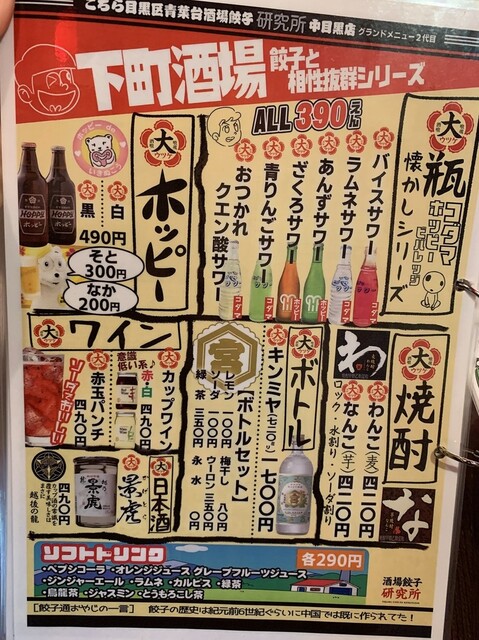 こちら目黒区青葉台酒場餃子 研究所 中目黒店 グランドメニュー2代目
下町酒場 餃子と相性抜群シリーズ
ALL 390えん
大 瓶
懐かしシリーズ
コダマ
ホッピー
ビバレッジ
バイスサワー
ラムネサワー
あんずサワー
ざくろサワー
青りんごサワー
おつかれ
クエン酸サワー
大 ホッピー
白
黒
490円
そと
300円
なか
200円
HOPPY
ホッピー
大 焼酎
わんこ(麦) 四二〇円
なんこ(芋) 四二〇円
ロック・水割り・ソーダ割り
わ
な
大 ボトル
キンミヤ(七二〇ml) 七〇〇〇円
【ボトルセット】
レモン 一〇〇円 梅干し 八〇円
ソーダ 一〇〇円 ウーロン 三五〇円
緑茶 三五〇円 水 〇円
宮
大 ワイン
カップワイン
赤・白 四九〇円
意識低い系♪
赤玉パンチ 四九〇円
ソーダでおいしい
大 日本酒
景虎
かげとら
四九〇円
越後の龍
ソフトドリンク 各290円
・ペプシコーラ ・オレンジジュース グレープフルーツジュース
・ジンジャーエール ・ラムネ ・カルピス ・緑茶
・烏龍茶 ・ジャスミン ・とうもろこし茶
酒場餃子
研究所
[餃子通おやじの一言] 餃子の歴史は紀元前6世紀ぐらいに中国では既に作られてた!